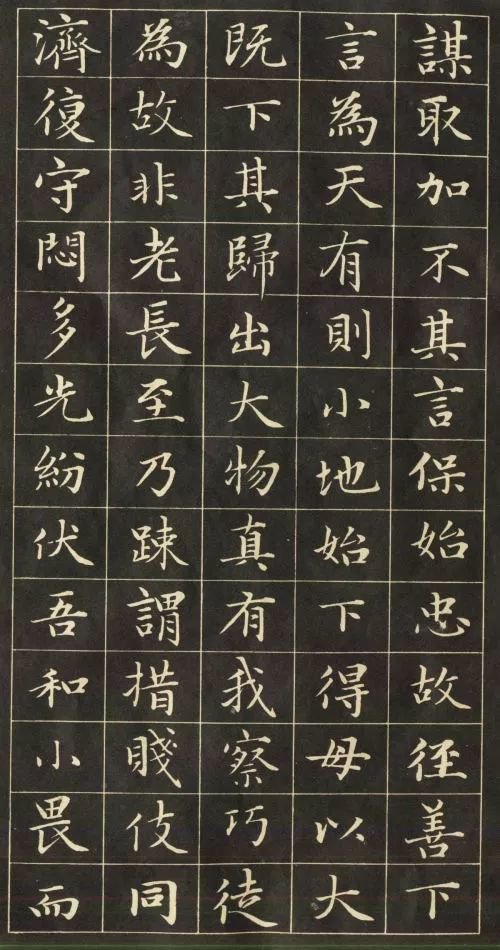 謀取加不其言保始忠故徑善下
言為天有則小地始下得毋以大
既下其歸出大物真有我察巧徒
為故非老長至乃踈謂措賤伎同
濟復守悶多光紛伏吾和小畏而